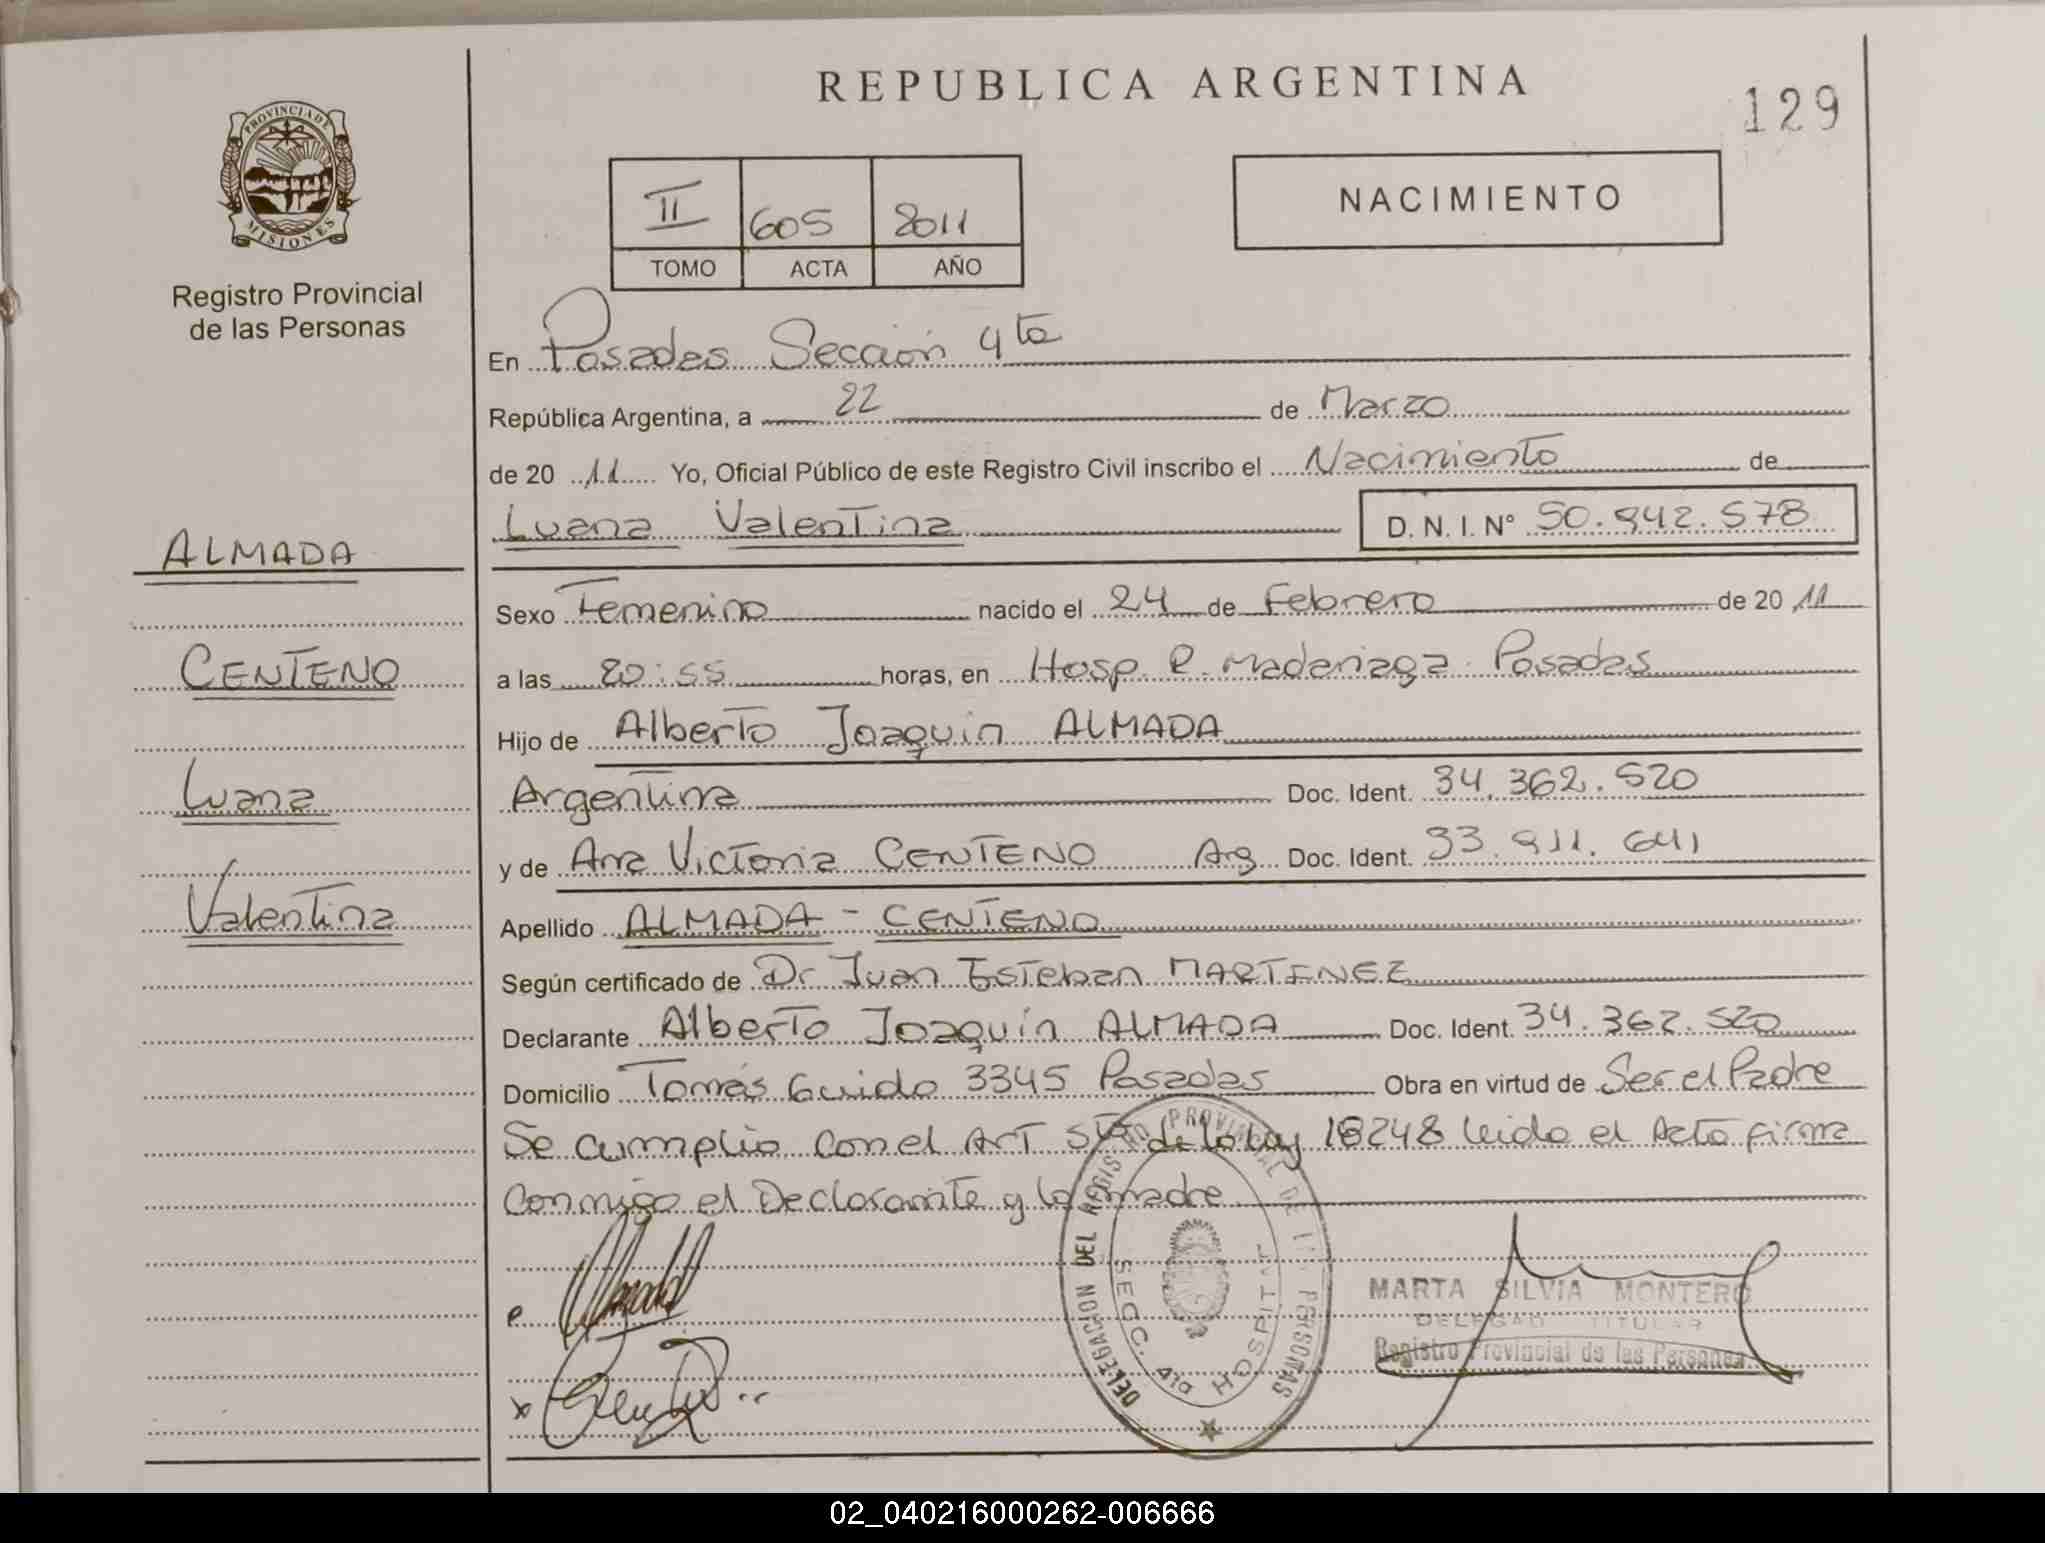 REPUBLICA ARGENTINA
129
PROVINCIA DE
MISIONES
Registro Provincial
de las Personas
II 605 2011
TOMO ACTA AÑO
NACIMIENTO
En Posadas Sección 4ta
República Argentina, a 22 de Marzo
de 20 11 Yo, Oficial Público de este Registro Civil inscribo el Nacimiento de
Luana Valentina D. N. I. N° 50.942.578
ALMADA
CENTENO
Luana
Valentina
Sexo Femenino nacido el 24 de Febrero de 20 11
a las 20:55 horas, en Hosp. R. Madariaga Posadas
Hijo de Alberto Joaquin ALMADA
Argentina Doc. Ident. 34.362.520
y de Ana Victoria CENTENO Arg Doc. Ident. 33.911.641
Apellido ALMADA - CENTENO
Según certificado de Dr Juan Esteban MARTINEZ
Declarante Alberto Joaquín ALMADA Doc. Ident. 34.362.520
Domicilio Tomás Guido 3345 Posadas Obra en virtud de Ser el Padre
Se cumplio con el Art 5to de la Ley 18248 leida el Acta firma
conmigo el Declarante y la madre
DELEGACION DEL REGISTRO PROVINCIAL DE LAS PERSONAS
SECC. 4ta HOSPITAL
MARTA SILVIA MONTERO
DELEGADA TITULAR
Registro Provincial de las Personas
02_040216000262-006666